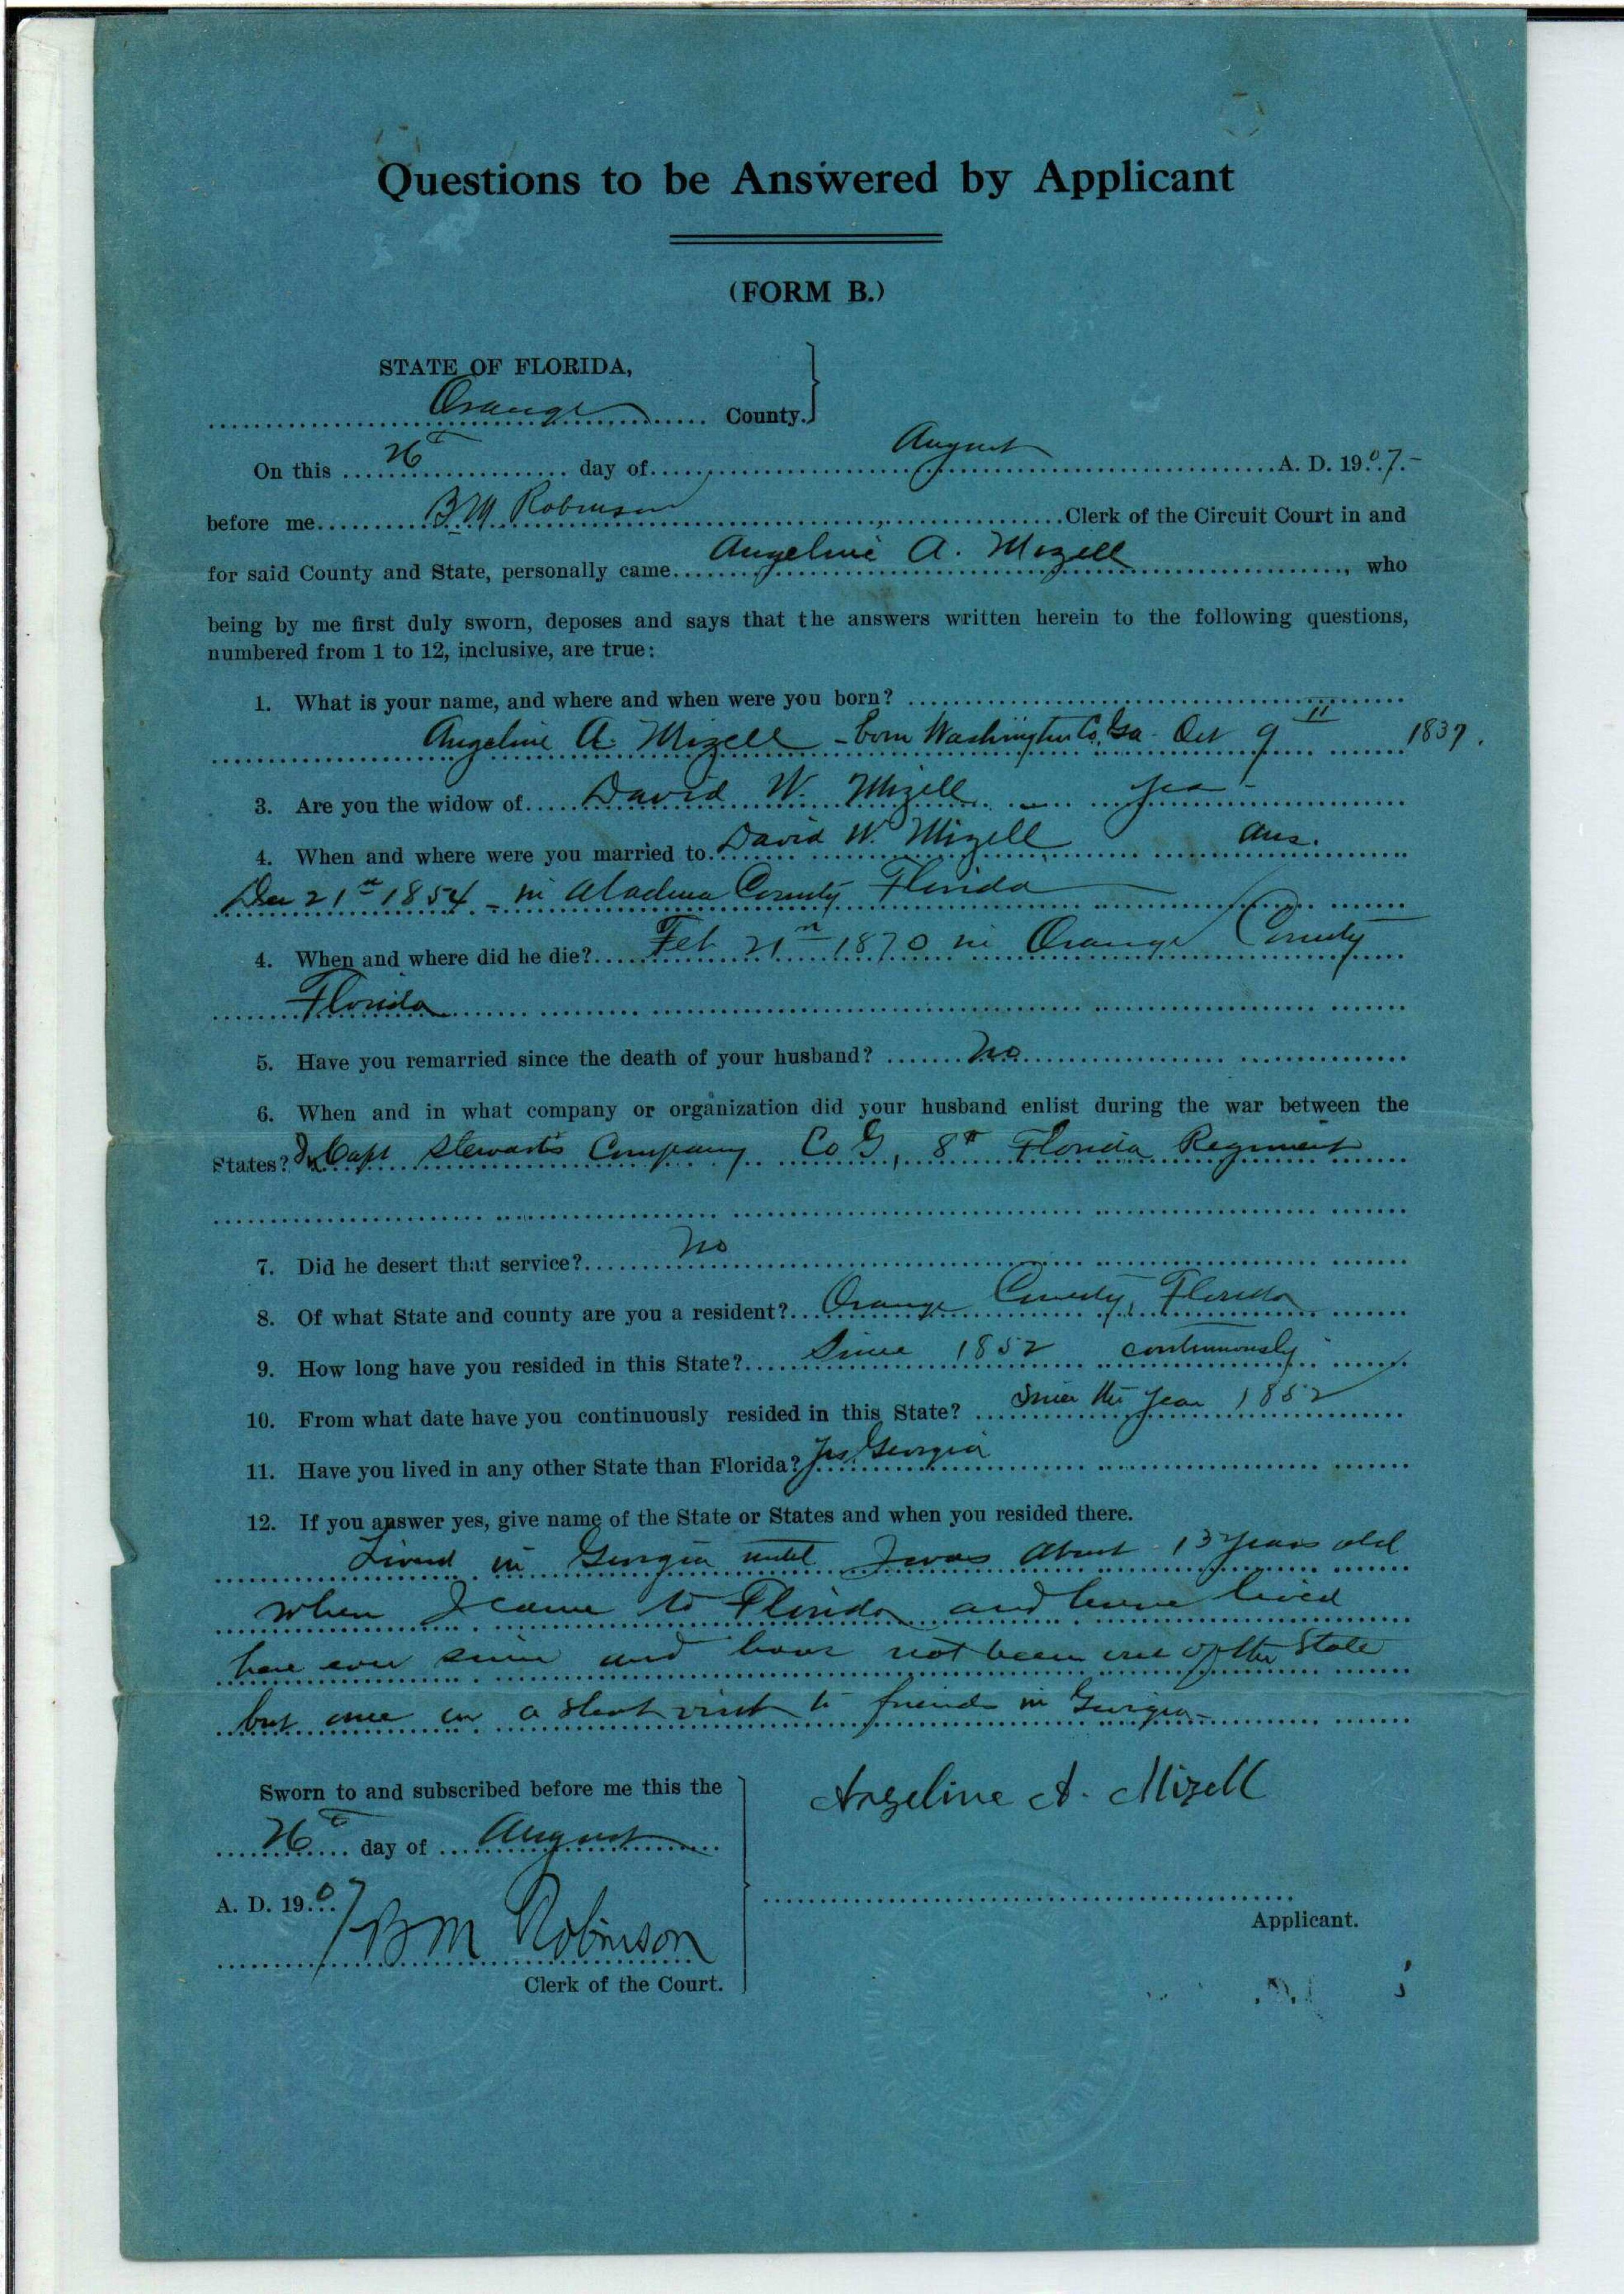 Questions to be Answered by Applicant
(FORM B.)
STATE OF FLORIDA,
Orange County.
On this 26th day of August A. D. 1907.
before me B M Robinson Clerk of the Circuit Court in and
for said County and State, personally came Angeline A. Mizell, who
being by me first duly sworn, deposes and says that the answers written herein to the following questions,
numbered from 1 to 12, inclusive, are true:
1. What is your name, and where and when were you born?
Angeline A. Mizell - born Washington Co, Ga - Oct 9th 1837.
3. Are you the widow of David W. Mizell yes -
4. When and where were you married to David W. Mizell ans.
Dec 21st 1854 - in Alachua County Florida
4. When and where did he die? Feb 21st 1870 in Orange County
Florida
5. Have you remarried since the death of your husband? No
6. When and in what company or organization did your husband enlist during the war between the
States? In Capt Stewarts Company Co G, 8th Florida Regiment
7. Did he desert that service? No
8. Of what State and county are you a resident? Orange County, Florida
9. How long have you resided in this State? Since 1852 continuously
10. From what date have you continuously resided in this State? Since the year 1852
11. Have you lived in any other State than Florida? Yes, Georgia
12. If you answer yes, give name of the State or States and when you resided there.
Lived in Georgia until I was about 13 years old
when I came to Florida and have lived
here ever since and have not been out of the State
but once on a short visit to friends in Georgia -
Sworn to and subscribed before me this the
26th day of August
A. D. 1907
B M Robinson
Clerk of the Court.
Angeline A. Mizell
Applicant.